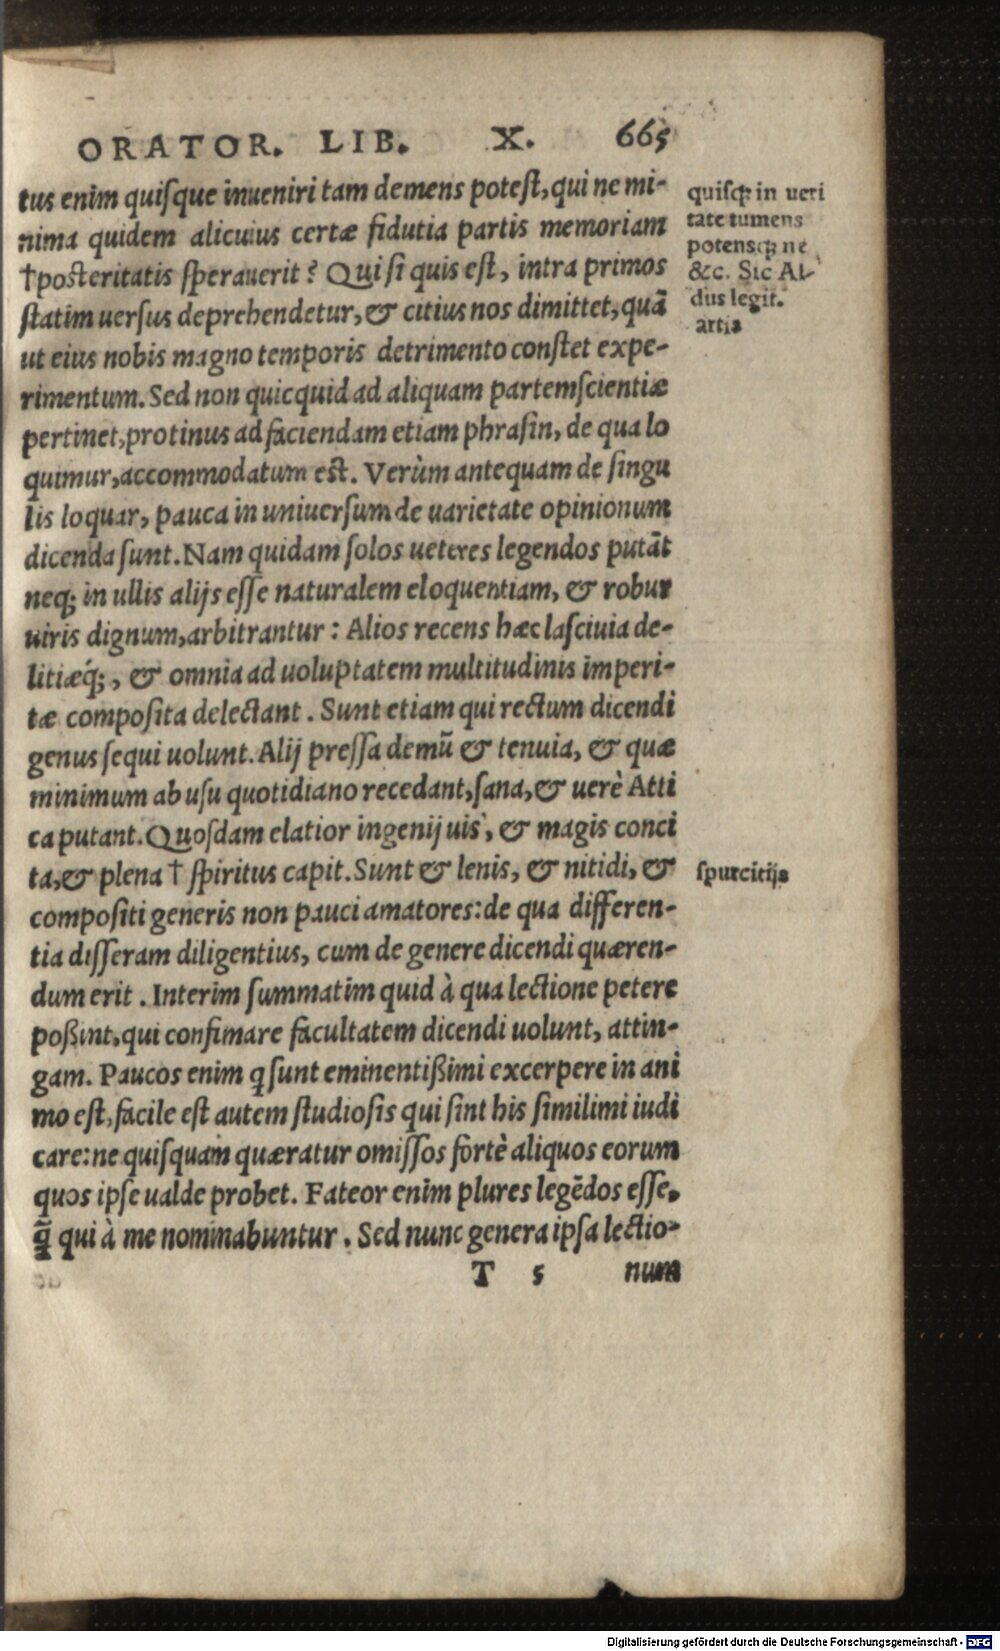 ORATOR. LIB. X. 665
tus enim quisque inueniri tam demens potest, qui ne mi-
nima quidem alicuius certæ fidutia partis memoriam
†posteritatis sperauerit? Qui si quis est, intra primos
statim uersus deprehendetur, & citius nos dimittet, quā
ut eius nobis magno temporis detrimento constet expe-
rimentum. Sed non quicquid ad aliquam partem scientiæ
pertinet, protinus ad faciendam etiam phrasin, de qua lo
quimur, accommodatum est. Verùm antequam de singu
lis loquar, pauca in uniuersum de uarietate opinionum
dicenda sunt. Nam quidam solos ueteres legendos putāt
neq; in ullis alijs esse naturalem eloquentiam, & robur
uiris dignum, arbitrantur: Alios recens hæc lasciuia de-
litiæq́;, & omnia ad uoluptatem multitudinis imperi-
tæ composita delectant. Sunt etiam qui rectum dicendi
genus sequi uolunt. Alij pressa demū & tenuia, & quæ
minimum ab usu quotidiano recedant, sana, & uerè Atti
ca putant. Quosdam elatior ingenij uis, & magis conci
ta, & plena † spiritus capit. Sunt & lenis, & nitidi, &
compositi generis non pauci amatores: de qua differen-
tia disseram diligentius, cum de genere dicendi quæren-
dum erit. Interim summatim quid à qua lectione petere
poßint, qui confimare facultatem dicendi uolunt, attin-
gam. Paucos enim q sunt eminentißimi excerpere in ani
mo est, facile est autem studiosis qui sint his similimi iudi
care: ne quisquam quæratur omissos fortè aliquos eorum
quos ipse ualde probet. Fateor enim plures legēdos esse,
q̄ qui à me nominabuntur. Sed nunc genera ipsa lectio-
T 5 num
quisq; in ueri
tate tumens
potensq; ne
&c. Sic Al-
dus legit.
artis
spurcitijs
Digitalisierung gefördert durch die Deutsche Forschungsgemeinschaft - DFG